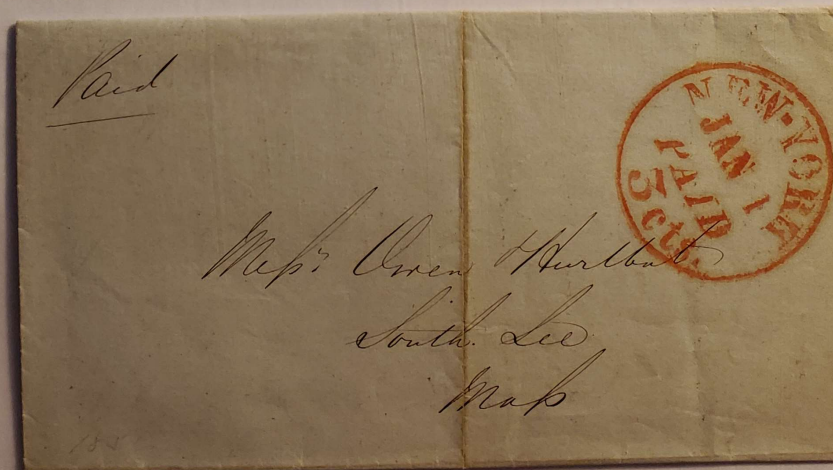 Paid
NEW-YORK
JAN 1
PAID
3 cts.
Messrs Owen & Hurlbut
South Lee
Mass